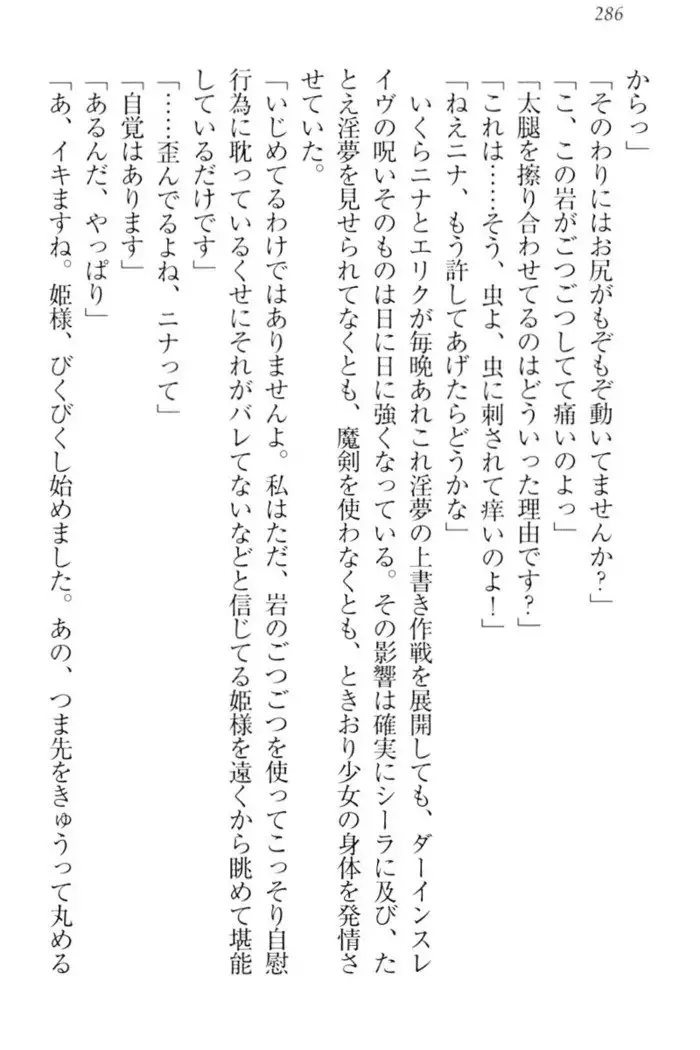 286
からっ」
「そのわりにはお尻がもぞもぞ動いてませんか？」
「こ、この岩がごつごつしてて痛いのよっ」
「太腿を擦り合わせてるのはどういった理由です？」
「これは……そう、虫よ、虫に刺されて痒いのよ！」
「ねえニナ、もう許してあげたらどうかな」
　いくらニナとエリクが毎晩あれこれ淫夢の上書き作戦を展開しても、ダーインスレ
イヴの呪いそのものは日に日に強くなっている。その影響は確実にシーラに及び、た
とえ淫夢を見せられてなくとも、魔剣を使わなくとも、ときおり少女の身体を発情さ
せていた。
「いじめてるわけではありませんよ。私はただ、岩のごつごつを使ってこっそり自慰
行為に耽っているくせにそれがバレてないなどと信じてる姫様を遠くから眺めて堪能
しているだけです」
「……歪んでるよね、ニナって」
「自覚はあります」
「あるんだ、やっぱり」
「あ、イキますね。姫様、びくびくし始めました。あの、つま先をきゅうって丸める